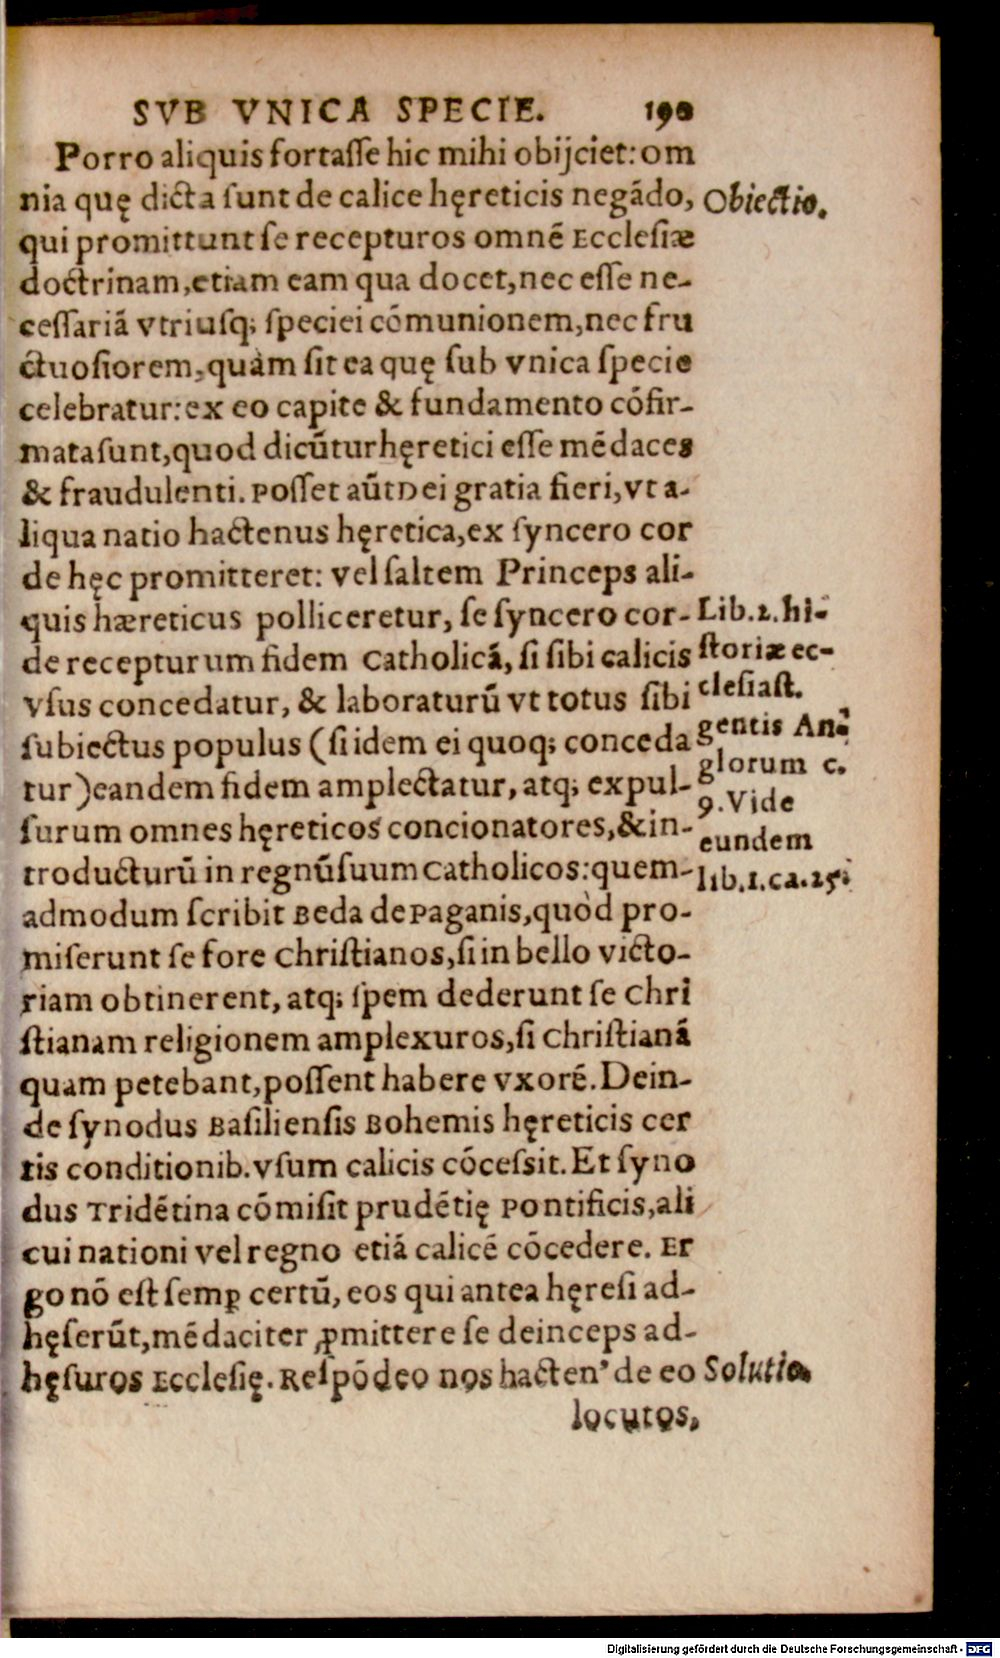 SVB VNICA SPECIE. 190
Porro aliquis fortaſſe hic mihi obijciet: om
nia quę dicta ſunt de calice hęreticis negādo,
Obiectio.
qui promittunt ſe recepturos omnē Eccleſiæ
doctrinam, etiam eam qua docet, nec eſſe ne-
ceſſariā vtriuſq; ſpeciei cōmunionem, nec fru
ctuoſiorem, quàm ſit ea quę ſub vnica ſpecie
celebratur: ex eo capite & fundamento cōfir-
mata ſunt, quod dicūtur hęretici eſſe mēdaces
& fraudulenti. Poſſet aūt Dei gratia fieri, vt a-
liqua natio hactenus hęretica, ex ſyncero cor
de hęc promitteret: vel ſaltem Princeps ali-
quis hæreticus polliceretur, ſe ſyncero cor-
de recepturum fidem Catholicā, ſi ſibi calicis
vſus concedatur, & laboraturū vt totus ſibi
ſubiectus populus (ſi idem ei quoq; conceda
tur) eandem fidem amplectatur, atq; expul-
ſurum omnes hęreticos concionatores, & in-
troducturū in regnū ſuum Catholicos: quem-
Lib. 2. hi-
ſtoriæ ec-
cleſiaſt.
gentis An-
glorum c.
9. Vide
eundem
lib. 1. ca. 25.
admodum ſcribit Beda de Paganis, quòd pro-
miſerunt ſe fore Chriſtianos, ſi in bello victo-
riam obtinerent, atq; ſpem dederunt ſe Chri
ſtianam religionem amplexuros, ſi Chriſtianā
quam petebant, poſſent habere vxorē. Dein-
de ſynodus Baſilienſis Bohemis hęreticis cer
tis conditionib. vſum calicis cōceſsit. Et ſyno
dus Tridētina cōmiſit prudētię Pontificis, ali
cui nationi vel regno etiā calicē cōcedere. Er
go nō eſt ſemꝑ certū, eos qui antea hęreſi ad-
hęſerūt, mēdaciter ꝓmittere ſe deinceps ad-
hęſuros Eccleſię. Reſpōdeo nos hacten' de eo
Solutio.
locutos,
Digitalisierung gefördert durch die Deutsche Forschungsgemeinschaft - DFG